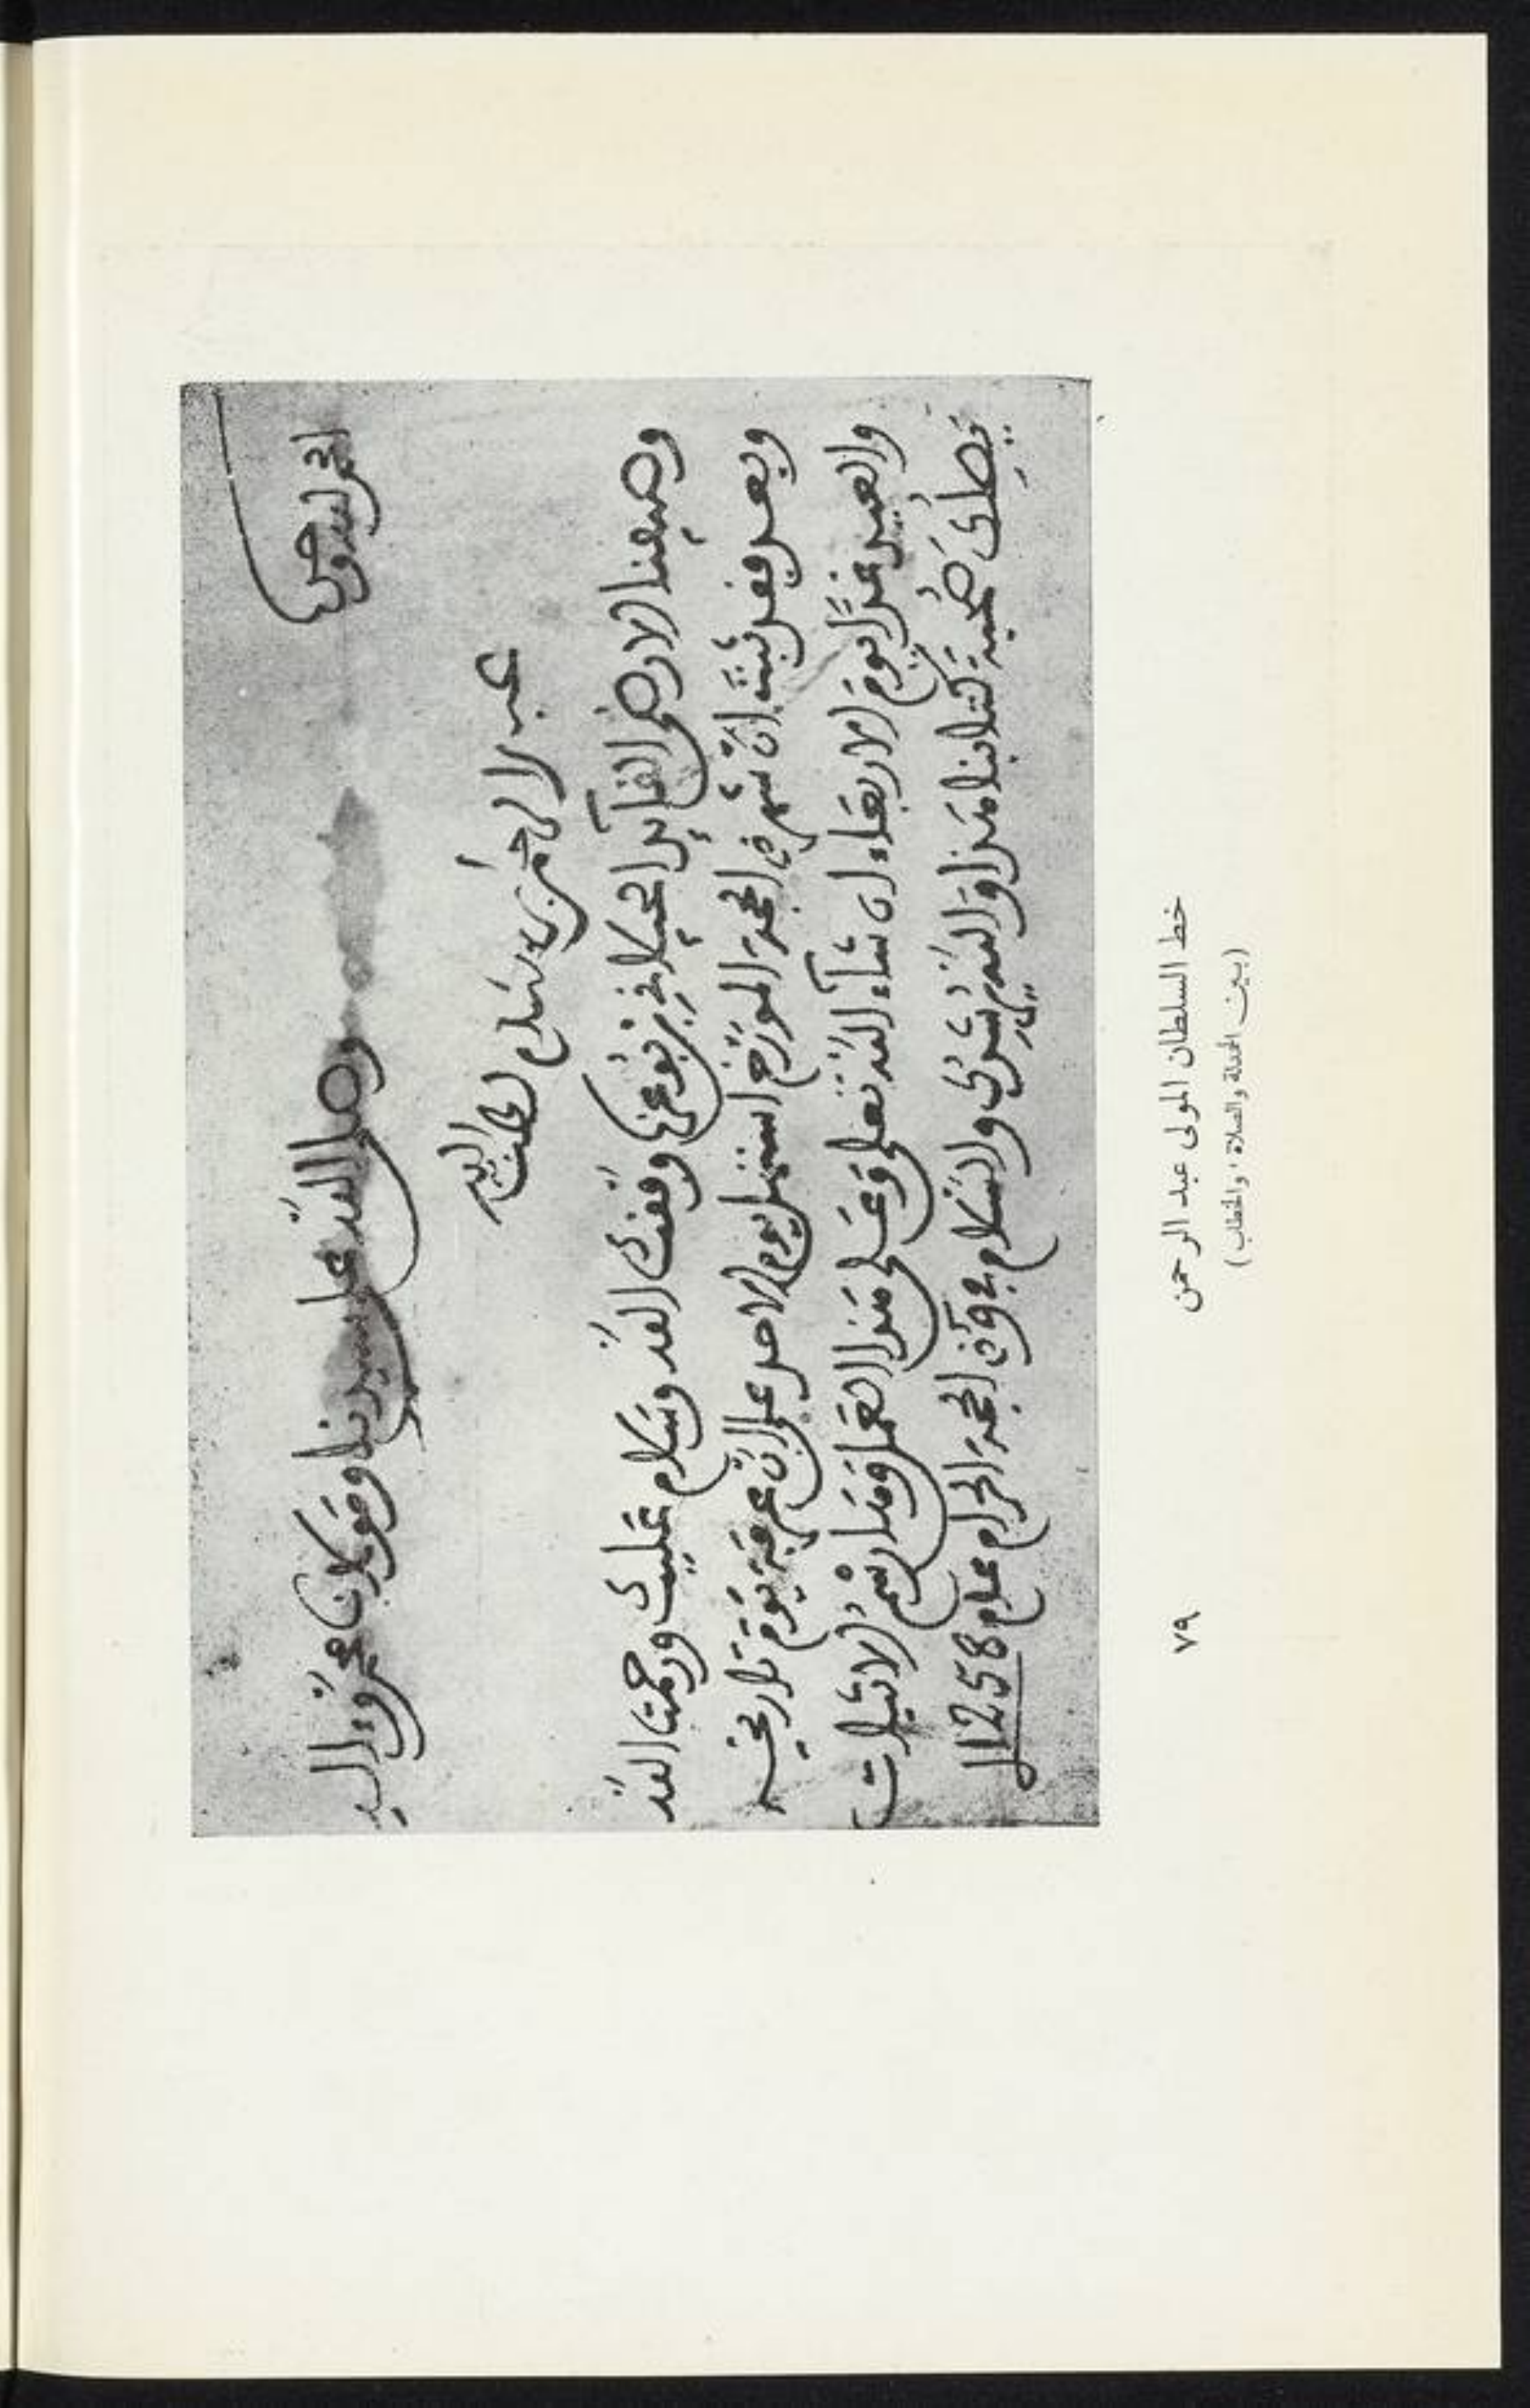 الحمد لله وحده وصلى الله على سيدنا ومولانا محمد وءاله
عبد الرحمن بن هشام لطف الله به
وصيفنا الارضى القائد الجيلاني بن بوعزة وفقك الله وسلام عليك ورحمت الله
وبعد فقد ثبت ان شهر ذي الحجة المورخ استهل يوم الاحد على ان عرفة يوم تاريخه
والعيد غدا يوم الاربعاء ان شاء الله تعلى وعلى هذا العمل وهذا رسم الاثبات
يصلك صحبة كتابنا هذا والله يتولاك والسلام في 9 ذي الحجة الحرام عام 1258
خط السلطان المولى عبد الرحمن
(بين الحمدلة والصلاة، والخطاب)
٧٩